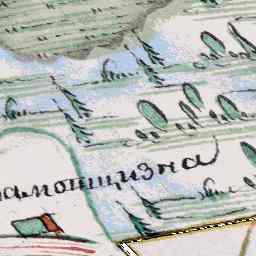 амотщизна